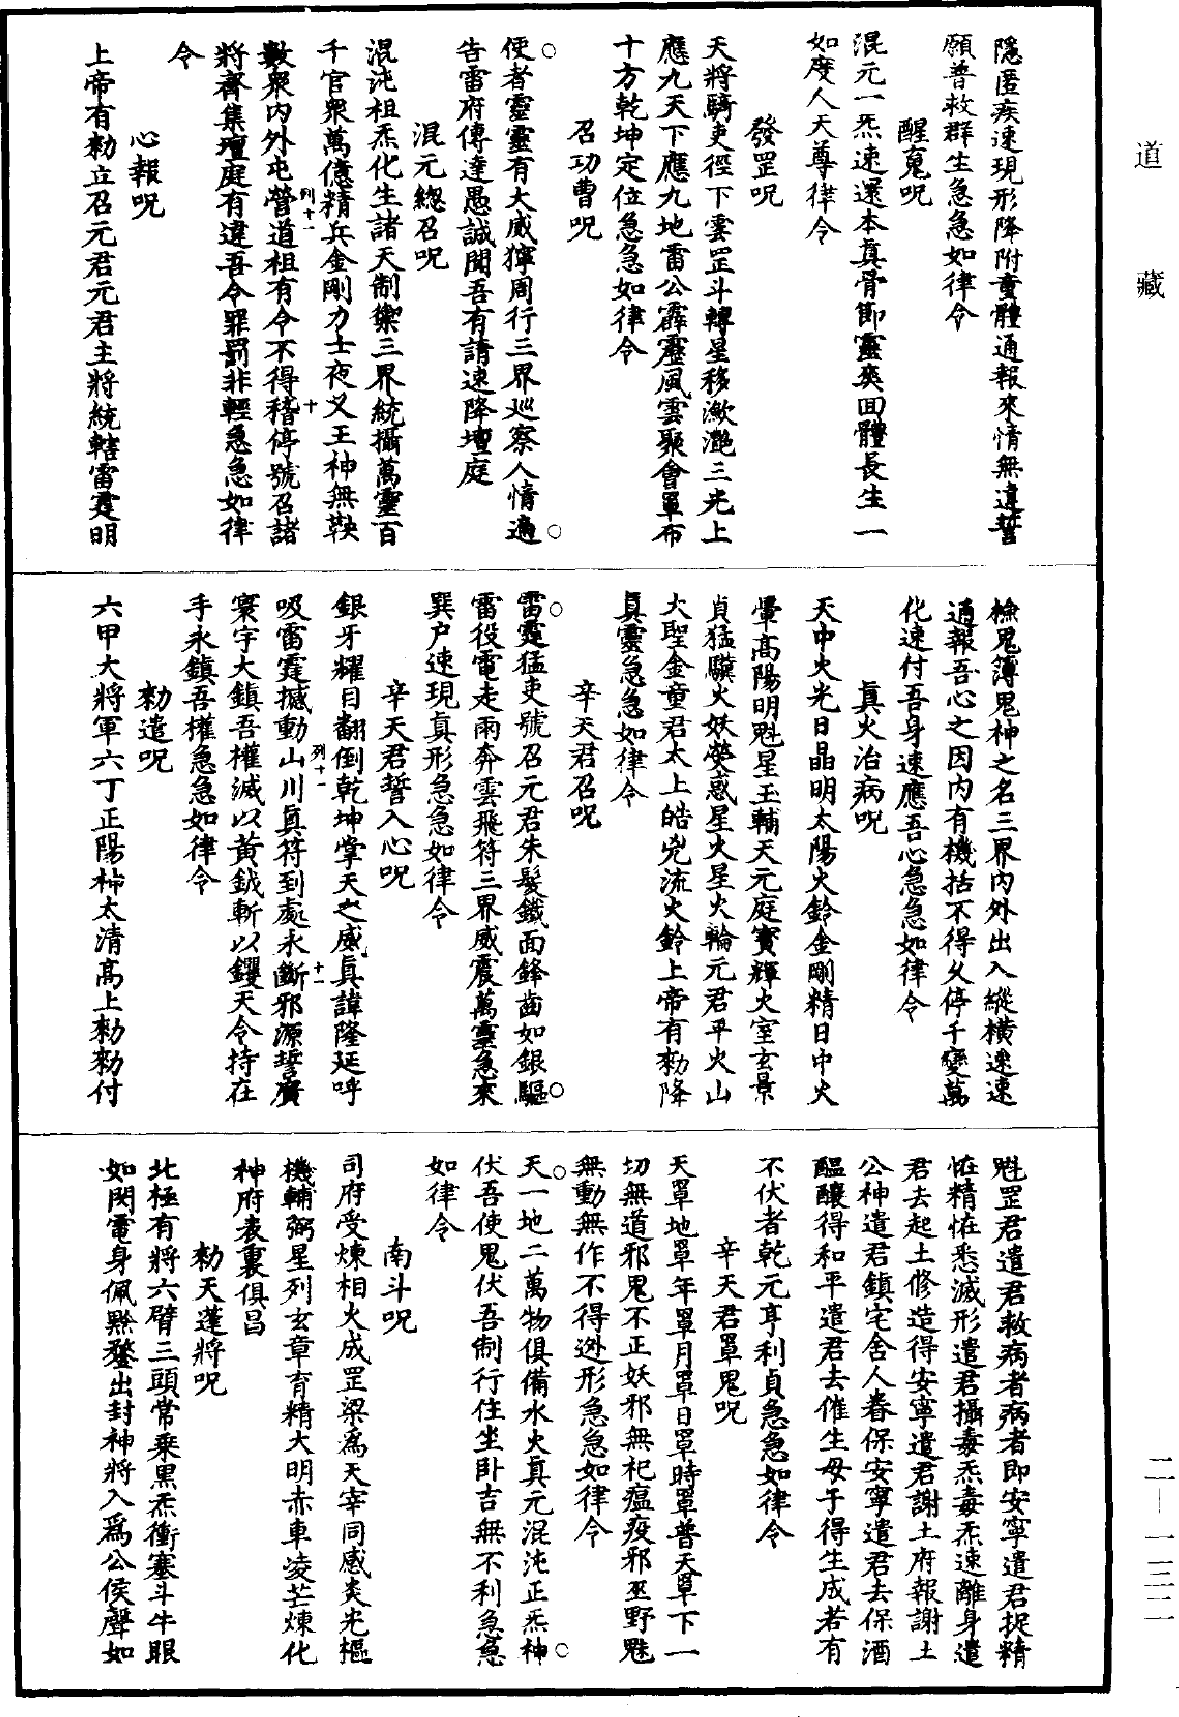 道藏
隱匿疾速現形降附童體通報來情無違誓
願普救群生急急如律令
醒䰟呪
混元一炁速還本真骨節靈爽回體長生一
如度人天尊律令
發罡呪
天將騎吏徑下雲罡斗轉星移瀲灩三光上
應九天下應九地雷公霹靂風雲聚會罩布
十方乾坤定位急急如律令
召功曹呪
使者靈靈有大威獰周行三界巡察人情適
告雷府傳達愚誠聞吾有請速降壇庭
混元總召呪
混沌祖炁化生諸天制禦三界統攝萬靈百
千官眾萬億精兵金剛力士夜叉王神無鞅
列十一
十
數眾內外屯營道祖有令不得稽停號召諸
將齊集壇庭有違吾令罪罰非輕急急如律
令
心報呪
上帝有勑立召元君元君主將統轄雷霆明
檢鬼簿鬼神之名三界內外出入縱橫速速
通報吾心之因內有機括不得久停千變萬
化速付吾身速應吾心急急如律令
真火治病呪
天中火光日晶明太陽火鈴金剛精日中火
暈高陽明魁星玉輔天元庭寶輝火室玄景
貞猛驥火妖熒惑星火星火輪元君平火山
大聖金童君太上皓兇流火鈴上帝有勑降
真靈急急如律令
辛天君召呪
雷霆猛吏號召元君朱髮鐵面鋒齒如銀驅
雷役電走雨奔雲飛符三界威震萬靈急來
巽户速現真形急急如律令
辛天君誓入心呪
銀牙耀目翻倒乾坤掌天之威真諱隆延呼
列十一
十一
吸雷霆撼動山川真符到處永斷邪源誓廣
寰宇大鎮吾權滅以黃鉞斬以鑼天令持在
手永鎮吾權急急如律令
勑遣呪
六甲大將軍六丁正陽神太清高上勑勑付
魁罡君遣君救病者病者即安寧遣君捉精
恠精恠悉滅形遣君攝毒炁毒炁速離身遣
君去起土修造得安寧遣君謝土府報謝土
公神遣君鎮宅舍人眷保安寧遣君去保酒
醞釀得和平遣君去催生母子得生成若有
不伏者乾元亨利貞急急如律令
辛天君罩鬼呪
天罩地罩年罩月罩日罩時罩普天罩下一
切無道邪鬼不正妖邪無祀瘟疫邪巫野魅
無動無作不得逃形急急如律令
天一地二萬物俱備水火真元混沌正炁神
伏吾使鬼伏吾制行住坐卧吉無不利急急
如律令
南斗呪
司府受煉相火成罡梁為天宰同感炎光樞
機輔弼星列玄章育精大明赤車凌芒煉化
神府表裏俱昌
勑天蓬將呪
北極有將六臂三頭常乘黑炁衝塞斗牛眼
如閃電身佩黙鍪出封神將入為公侯聲如
二—一三二